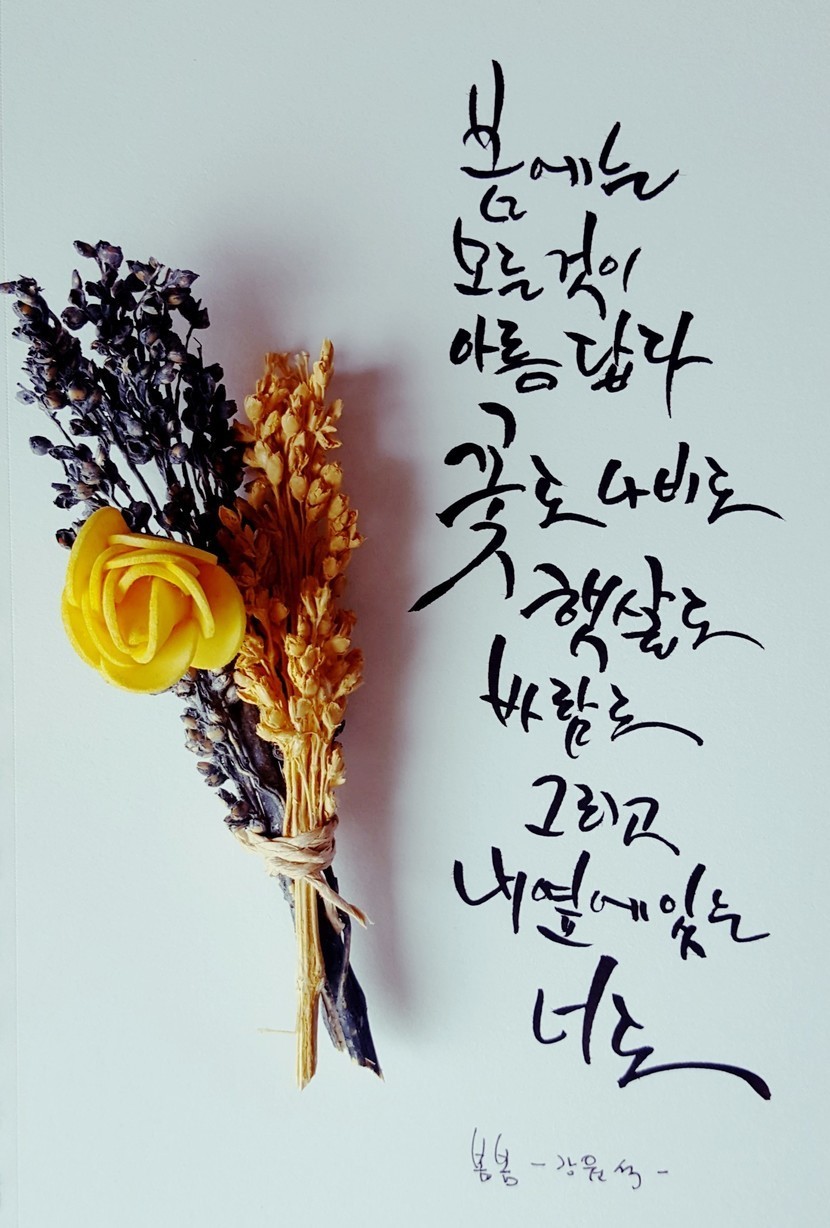 봄에는
모든 것이
아름답다
꽃도 나비도
햇살도
바람도
그리고
내 옆에 있는
너도
봄봄 - 강원석 -